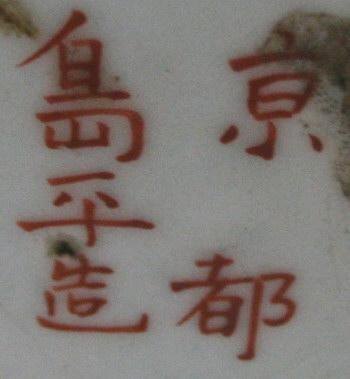 京都
島平造